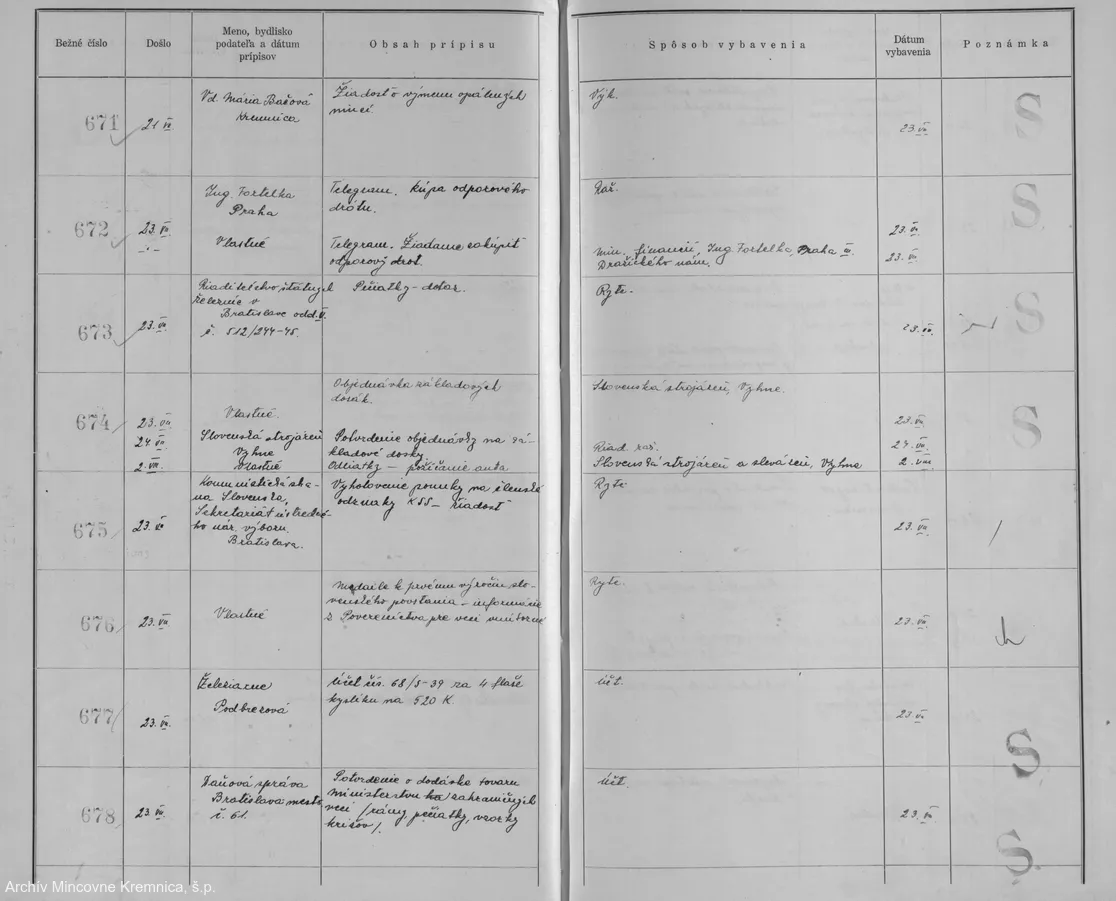 Bežné číslo
Došlo
Meno, bydlisko
podateľa a dátum
prípisov
Obsah prípisu
Spôsob vybavenia
Dátum
vybavenia
Poznámka
671
21. VII.
Vd. Mária Bačová
Kremnica
Žiadosť o výmenu opálených
mincí.
Výk.
23. VII.
S
672
23. VII.
Ing. Fortelka
Praha
Telegram. Kúpa odporového
drôtu.
Raž.
23. VII.
S
Vlastné
Telegram. Žiadame zakúpiť
odporový drot.
Min. financií, Ing Fortelka, Praha III
Dražického nám.
23. VII.
673
23. VII.
Riaditeľstvo štátnych
železníc v
Bratislave odd. V.
č. 512/244-45.
Pečiatky - dotaz.
Ryte.
23. VII.
S
674
23. VII.
Vlastné.
Objednávka základových
dosák.
Slovenská strojáreň, Vyhne.
23. VII.
S
24. VII.
Slovenská strojáreň
Vyhne
Potvrdenie objednávky na zá-
kladové dosky.
Riad. raž.
24. VII.
2. VIII.
Vlastné
Odliatky - požičanie auta
Slovenská strojáreň a sleváreň, Vyhne
2. VIII
675
23. VII
Komunistická stra-
na Slovenska,
Sekretariát ústredné-
ho nár. výboru.
Bratislava.
Vyhotovenie ponuky na členské
odznaky KSS - žiadosť
Ryte
23. VII.
676
23. VII.
Vlastné
Medaile k prvému výročiu slo-
venského povstania - informácie
z Povereníctva pre veci vnútorné
Ryte.
23. VII.
677
23. VII.
Železiarne
Podbrezová
Účet čís. 68/5-39 za 4 flaše
kyslíku na 520 K.
Účt.
23. VII
S
678
23. VII.
Daňová správa
Bratislava mesto
č. 61.
Potvrdenie o dodávke tovaru
Ministerstvu zahraničných
vecí /rámy, pečiatky, vzorky
krížov/.
Účt.
23. VII.
S
Archív Mincovne Kremnica, š.p.